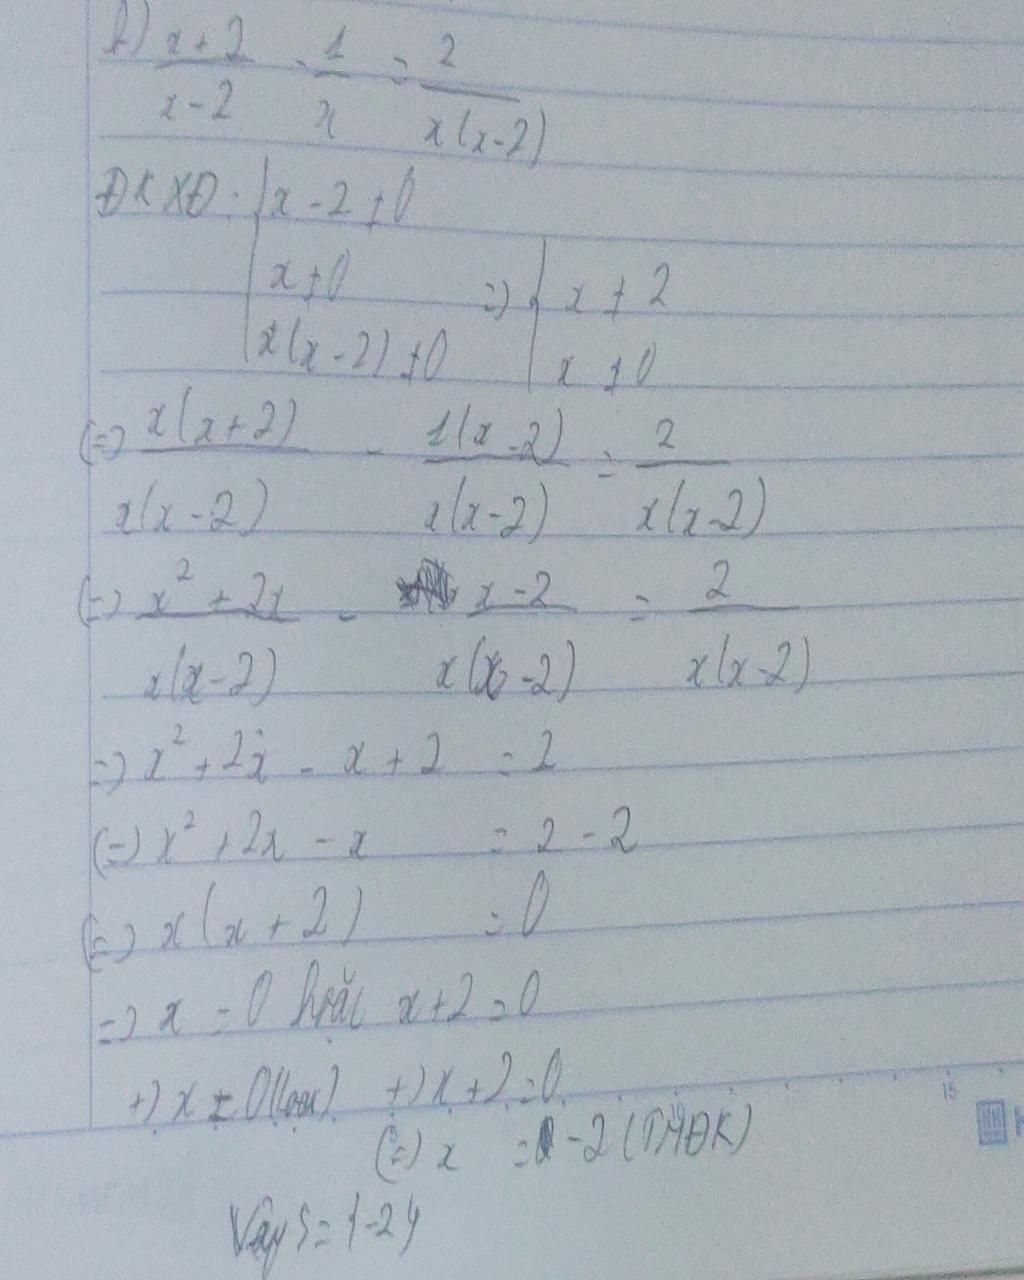 b) \frac{x+2}{x-2} - \frac{1}{x} = \frac{2}{x(x-2)}
ĐKXĐ: { x - 2 ≠ 0
x ≠ 0 => { x ≠ 2
x(x-2) ≠ 0 x ≠ 0
(=) \frac{x(x+2)}{x(x-2)} - \frac{1(x-2)}{x(x-2)} = \frac{2}{x(x-2)}
(=) \frac{x² + 2x}{x(x-2)} - \frac{x-2}{x(x-2)} = \frac{2}{x(x-2)}
=) x² + 2x - x + 2 = 2
(=) x² + 2x - x = 2 - 2
(=) x(x + 2) = 0
=) x = 0 hoặc x + 2 = 0
+) x = 0 (loại) +) x + 2 = 0
(=) x = -2 (TMĐK)
Vậy S = {-2}
15